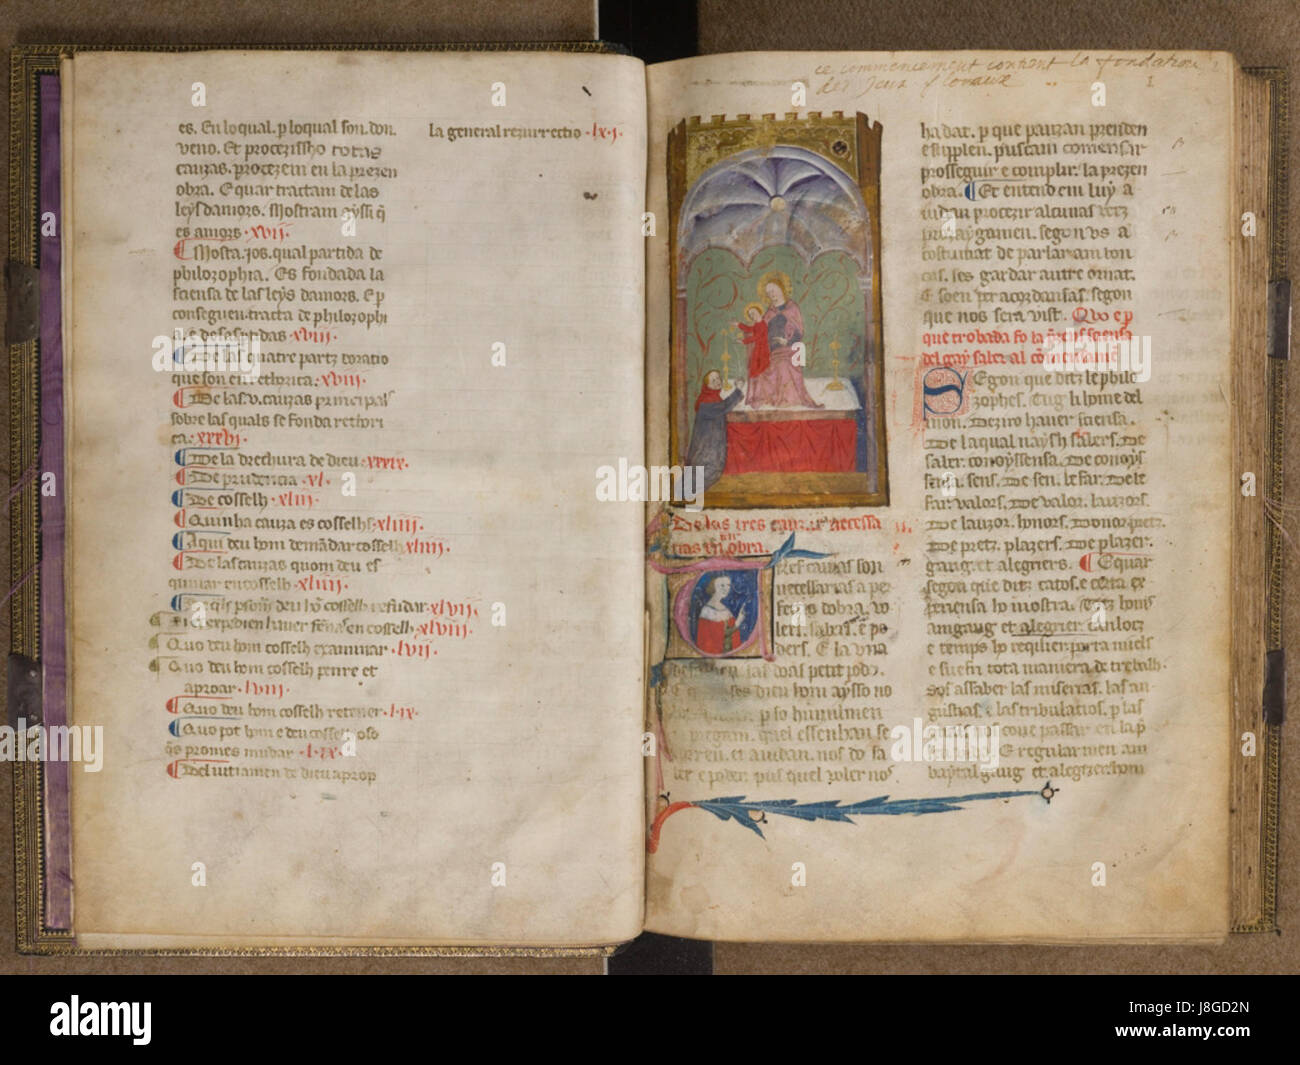 es. En lo qual. p loqual son. don.
veno. Et procezissho totas
cauzas. procezem en la prezen
obra. E quar tractam de las
leys damors. Mostram ayssi q̄
es amors. xvij.
Mostra jos. qual partida de
philozophia. Es fondada la
sciensa de las leys damors. E p
conseguen. tracta de philozophi
xviij.
De las quatre partz doratio
que son en rethorica. xviij.
De las .v. cauzas principals
sobre las quals se fonda rethori
ca. xxxvj.
De la drechura de dieu. xxxix.
De prudencia. xl.
De cosselh. xliij.
Quinha cauza es cosselhs. xliiij.
A qui deu hom demādar cosselh. xliiij.
De las cauzas quom deu es
quivar en cosselh. xliiij.
cosselh refudar. xlvij.
en cosselh. xlviij.
Quo deu hom cosselh examinar. lvij.
Quo deu hom cosselh penre et
aproar. lviij.
Quo deu hom cosselh retener. lix.
Quo pot hom e deu cosselh oso
q̄s promes mudar. lix.
Del jutiamen de dieu aprop
la general rezurrectio. lxj.
ce commencement contient la fondation
des Jeux floraux
1
De las tres cauzas necessa
rias en obra.
Tres cauzas son
necessarias a per
fieyt dobra. vo
lers. sabers. e po
ders. E la una
defalhen. las doas petit podō.
dieu hom aysso no
p so humilmen
pregam. quel essenhan se
et aiudan. nos do sa
ber e poder. pus quel voler nos
ha dat. p que puazan prenden
e supplen. puscam comensar
prosseguir e complir. la prezen
obra. Et enten em luy a
iudan procezir alcunas vetz
segon us a
costumat de parlar am ton
cas. ses gardar autre ornat.
E so en per acordansas. segon
que nos sera vist. Quo e p
que trobada fo la p̄zens sciensa
del gay saber al comensamē
Segon que ditz le philo
zophes. Tug li home del
mon. Deziro haver sciensa.
De la qual naysh sabers. De
saber. conoyssensa. De conoys
sensa. sens. De sen. be far. De be
far. valors. De valor. lauzors.
De lauzor. honors. Donor. pretz.
De pretz. plazers. De plazer.
gaug. et alegriers. E quar
segon que ditz catos. e certa ex
periensa ho mostra. Totz homs
am gaug et alegrier. can loc
e temps ho requier. porta miels
e suefri tota maniera de trebalh.
So es assaber las miserias. las an
gustias. e las tribulatios. p las
quals nos cove passar en la p̄
E regularmen am
baytal gaug et alegrier. hom
alamy
alamy
Image ID: J8GD2N
www.alamy.com